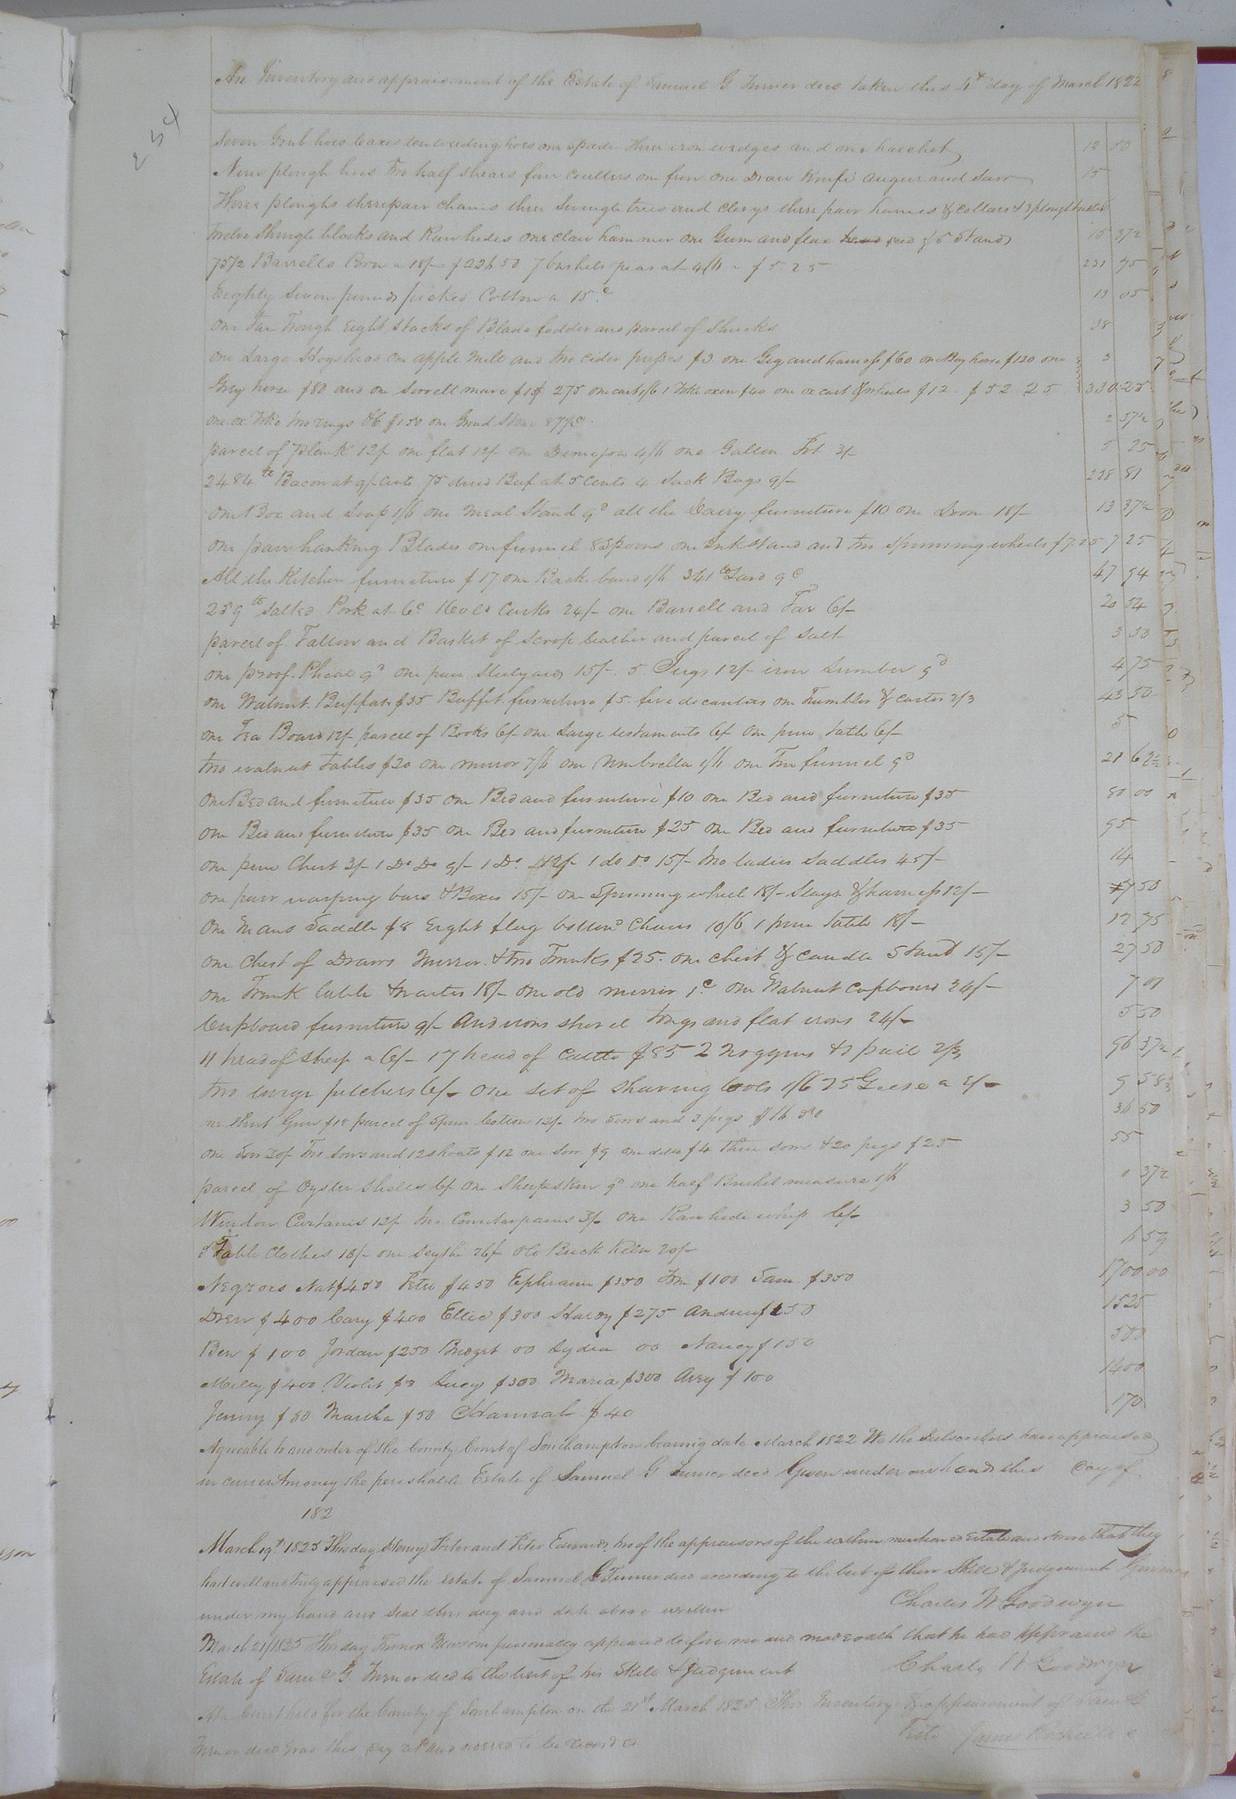 254
An Inventory and appraisement of the Estate of Samuel G Turner decd taken this 4th day of March 1822
Seven Grub hoes 6 axes ten weeding hoes one spade three iron wedges and one hatchet 12 50
Nine plough hoes two half shears four coulters one froe one Draw Knife auger and saw 15
Three ploughs three pair chains three Swingle trees and clevys three pair hames & collars & 3 plough
Twelve Shingle blocks and Raw hides one claw hammer one Gum and flax seed & 6 Stands 10 37½
75½ Barrells Corn a 18/- $226 50 7 bushels peas at 4/6 $5 25 231 75
Eighty Seven pounds picked Cotton a 15c 13 05
one Tar Trough Eight stacks of Blade fodder and parcel of Shucks 38
one Large Hogshead one apple Mill and two cider presses $3 one Gig and harness $60 one Bay horse $120 one 3
Grey horse $80 and one Sorrell mare $15 275 one cart 1/6 1 Yoke oxen $40 one ox cart & wheels $12 $52 25 330 25
one ox Yoke two rings $1 50 one Grind Stone 2 37½
parcel of Plank 12/ one flat 12/ one Demejon 4/6 one Gallon Pot 3/- 5 25
2484 lb Bacon at 9 cents 75 dried Beef at 5 cents 4 Sack Bags 9/- 228 81
one Box and Soap 1/6 one meal Stand 9d all the Dairy furniture $10 one 18/- 13 37½
one pair hanking Blades one funnel 8 Spoons one Ink stand and two Spinning wheels $7.25 7 25
All the Kitchen furniture $17 one 341 lb Lard 9c 47 94
259 lb salted Pork at 6c 16 old Casks 24/- one Barrell and Tar 6/- 20 54
parcel of Tallow and Basket of Scrap leather and parcel of Salt 3 50
one proof Phial 9d one pair Steelyards 15/- 5 Jugs 12/- iron Lumber 9d 4 75
one Walnut Buffat $35 Buffit furniture $5 five decanters one Tumbler & Castor 2/3 43 50
one Tea Board 12/ parcel of Books 6/ one Large testaments 6/ one pine table 6/- 5
two walnut tables $20 one mirror 7/6 one Umbrella 1/6 one Tin funnel 9d 21 62½
one Bed and furniture $35 one Bed and furniture $10 one Bed and furniture $35 80 00
one Bed and furniture $35 one Bed and furniture $25 one Bed and furniture $35 95
one pine Chest 3/- 1 Do Do 9/- 1 Do 12/- 1 do do 15/- two ladies Saddles 45/- 14
one pair warping bars & Boxes 15/- one Spinning wheel 18/- Slays & harness 12/- 7 50
one Mans Saddle $8 Eight flag bottomd Chairs 10/6 1 pine table 18/- 12 75
one Chest of Draws Mirror & two Trunks $25 one chest & candle Stand 15/- 27 50
one Trunk table & waiter 18/- one old mirror 1c one Walnut Cupboard 24/- 7 01
Cupboard furniture 9/- Andirons shovel tongs and flat irons 24/- 5 50
11 head of Sheep a 6/- 17 head of Cattle $85 2 noggins & 1 pail 2/3 96 37½
two large pitchers 6/- one set of shaving tools 1/6 25 Geese a 2/- 9 58⅓
one Shot Gun $18 parcel of Spun Cotton 12/- two Sows and 3 pigs $16 50 36 50
one Two Sows and 12 shoats $12 one Sow $9 one ditto $4 three Sows & 20 pigs $25 55
parcel of Oyster Shells 6/ one Sheepskin 9d one half Bushel measure 1/6 1 37½
Window Curtains 12/ two Counterpains 3/- one Rawhide whip 6/- 3 50
Table Clothes 18/- one Scythe 26/ old Brick Kiln 20/- 6 59
Negroes Nat $450 Peter $450 Ephraim $350 Tom $100 Sam $350 1700 00
Drew $400 Cary $400 Ellic $300 Harry $275 Andrew $150 1525
Ben $100 Jordan $250 Bridget 00 Lydia 00 Nancy $150 500
Milley $400 Violet $0 Lucy $300 Maria $300 Avey $100 1400
Jenny $80 Marsha $50 Hannah $40 170
Agreeable to and order of the County Court of Southampton bearing date March 1822 We the Subscribers have appraised
in current money the perishable Estate of Samuel G Turner decd Given under our hands this day of
182
March 19th 1825 This day Henry and Peter Edwards two of the appraisors of the within mentioned Estate and swore that they
had well and truly appraised the Estate of Samuel G Turner decd according to the best of their Skill & Judgement Given
under my hand and seal the day and date above written Charles W Goodwyn
March 21 1825 This day Turner Newsom personally appeared before me and made oath that he had appraised the
Estate of Saml G Turner decd to the best of his Skill & Judgement Charles W Goodwyn
At a Court held for the County of Southampton on the 21st March 1825 This Inventory & appraisement of Saml G
Turner decd was this day retd and ordered to be recorded Teste James Rochelle c